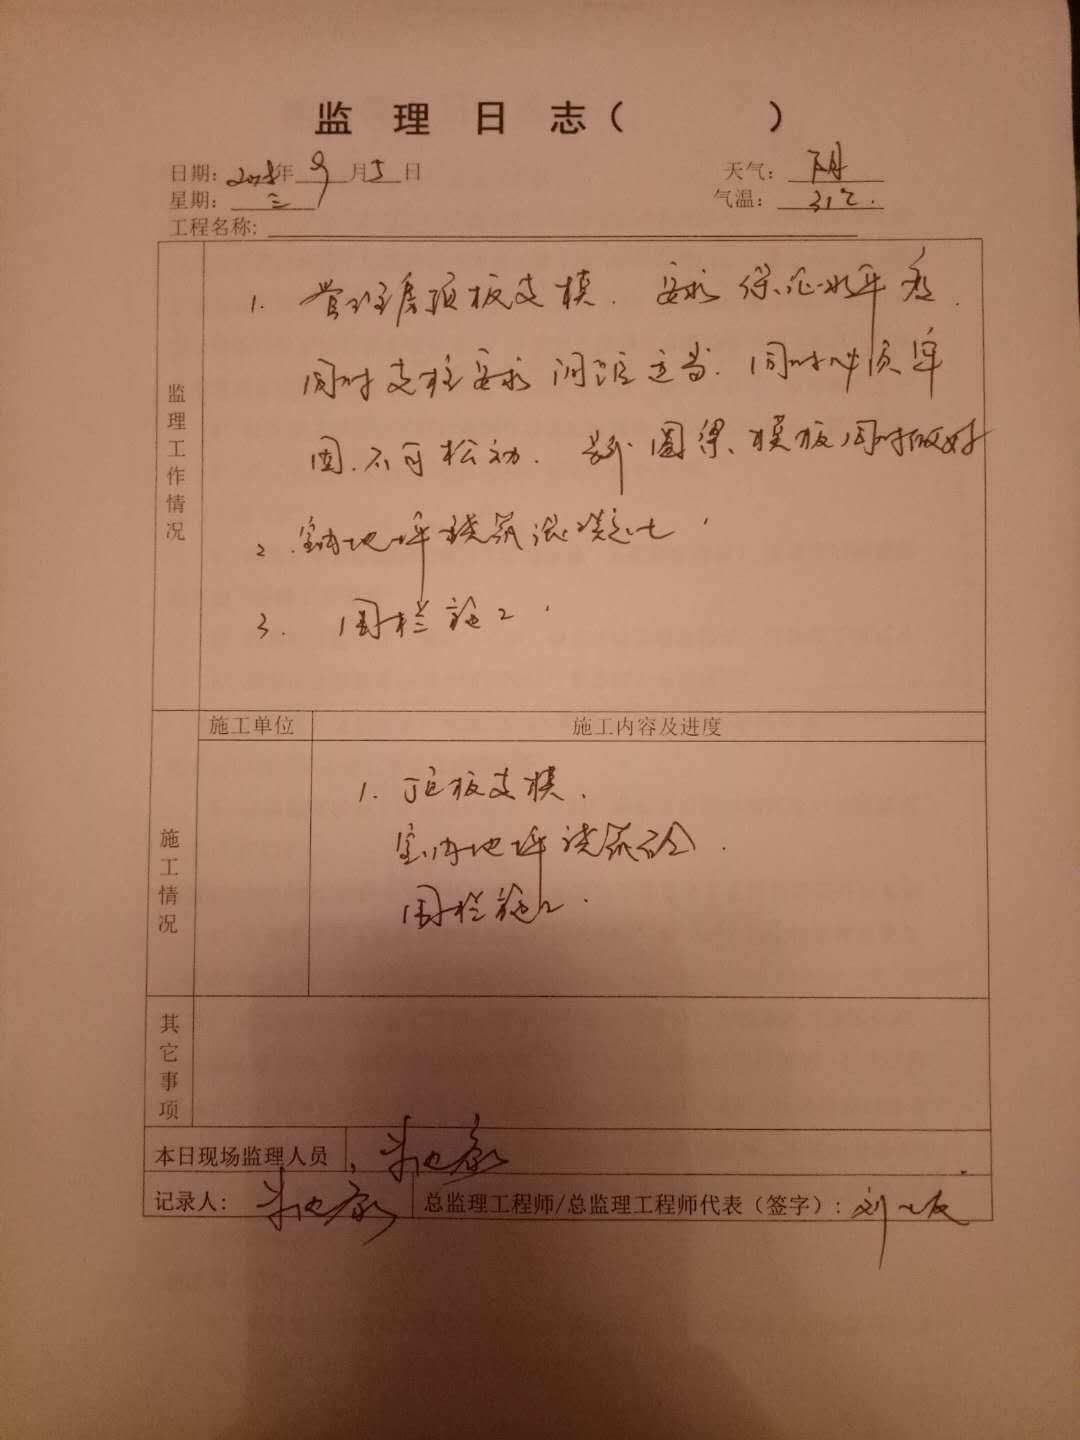 监 理 日 志（ ）
日期：2018年 9 月 5 日 天气：阴
星期：三 气温：31℃.
工程名称：
监理工作情况
1. 管理房顶板支模. 要求保证水平度.
同时支柱要求间距适当. 同时必须牢
固.不可松动. 圈梁、模板同时做好
2. 室内地坪浇筑混凝土.
3. 围栏施工.
施工情况
施工单位 施工内容及进度
1. 顶板支模.
室内地坪浇筑砼.
围栏施工.
其它事项
本日现场监理人员
记录人： 总监理工程师/总监理工程师代表（签字）：刘